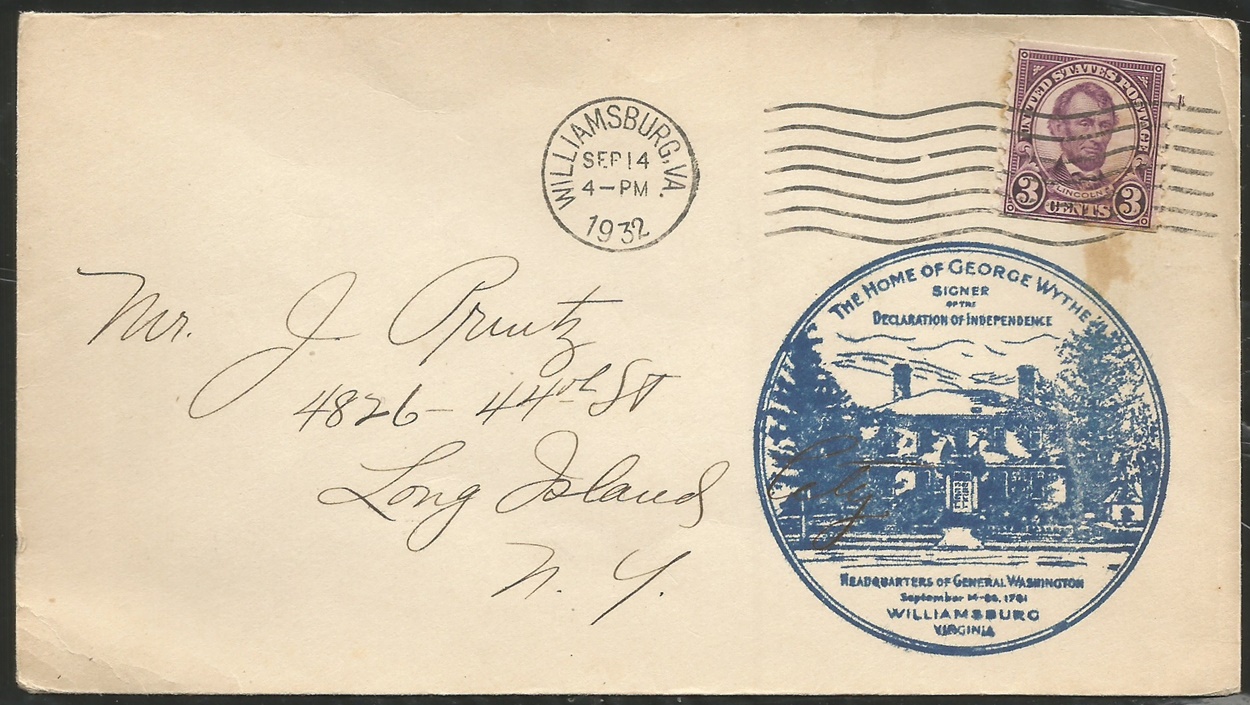 WILLIAMSBURG, VA.
SEP 14
4-PM
1932
UNITED STATES POSTAGE
LINCOLN
3 CENTS 3
Mr. J. Pruntz
4826 - 44th St
Long Island City
N. Y.
THE HOME OF GEORGE WYTHE
SIGNER
OF THE
DECLARATION OF INDEPENDENCE
HEADQUARTERS OF GENERAL WASHINGTON
September 14-28, 1781
WILLIAMSBURG
VIRGINIA